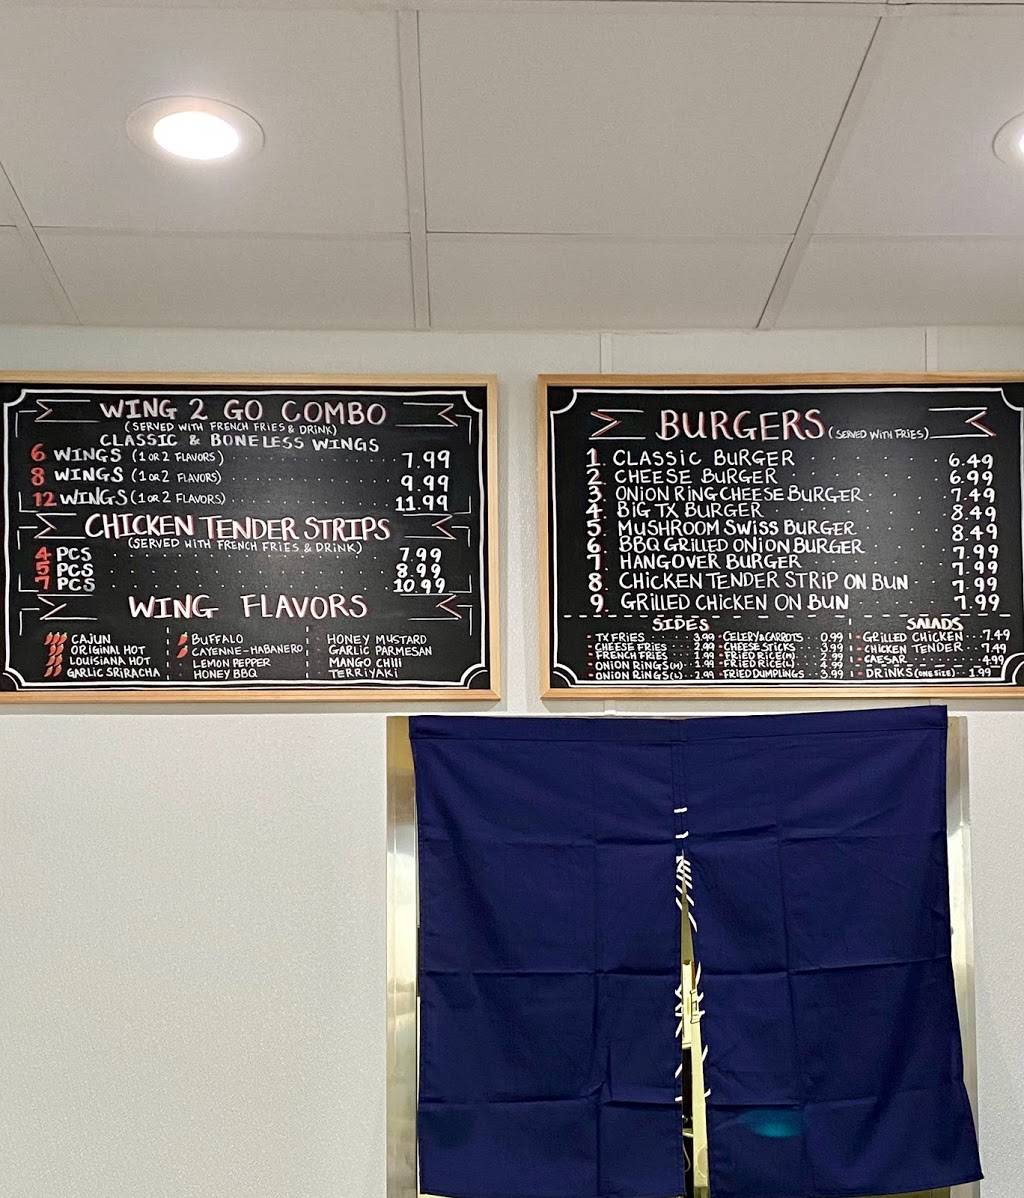 WING 2 GO COMBO
(SERVED WITH FRENCH FRIES & DRINK)
CLASSIC & BONELESS WINGS
6 WINGS (1 OR 2 FLAVORS) 7.99
8 WINGS (1 OR 2 FLAVORS) 9.99
12 WINGS (1 OR 2 FLAVORS) 11.99
CHICKEN TENDER STRIPS
(SERVED WITH FRENCH FRIES & DRINK)
4 PCS 7.99
5 PCS 8.99
7 PCS 10.99
WING FLAVORS
CAJUN
ORIGINAL HOT
LOUISIANA HOT
GARLIC SRIRACHA
BUFFALO
CAYENNE-HABANERO
LEMON PEPPER
HONEY BBQ
HONEY MUSTARD
GARLIC PARMESAN
MANGO CHILI
TERRIYAKI
BURGERS (SERVED WITH FRIES)
1. CLASSIC BURGER 6.49
2 CHEESE BURGER 6.99
3. ONION RING CHEESE BURGER 7.49
4. BIG TX BURGER 8.49
5 MUSHROOM SWISS BURGER 8.49
6 BBQ GRILLED ONION BURGER 7.99
7 HANGOVER BURGER 7.99
8 CHICKEN TENDER STRIP ON BUN 7.99
9 GRILLED CHICKEN ON BUN 7.99
SIDES
TX FRIES 3.99
CHEESE FRIES 2.99
FRENCH FRIES 1.99
ONION RINGS (M) 1.99
ONION RINGS (L) 2.99
CELERY & CARROTS 0.99
CHEESE STICKS 3.99
FRIED RICE (M) 2.99
FRIED RICE (L) 4.99
FRIED DUMPLINGS 3.99
SALADS
GRILLED CHICKEN 7.49
CHICKEN TENDER 7.49
CAESAR 4.99
DRINKS (ONE SIZE) 1.99